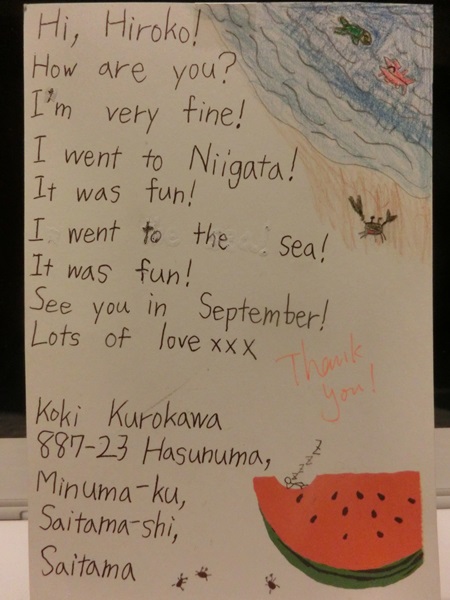 Hi, Hiroko!
How are you?
I'm very fine!
I went to Niigata!
It was fun!
I went to the sea!
It was fun!
See you in September!
Lots of love xxx
Thank you!
Koki Kurokawa
887-23 Hasunuma,
Minuma-ku,
Saitama-shi,
Saitama
zzzzz